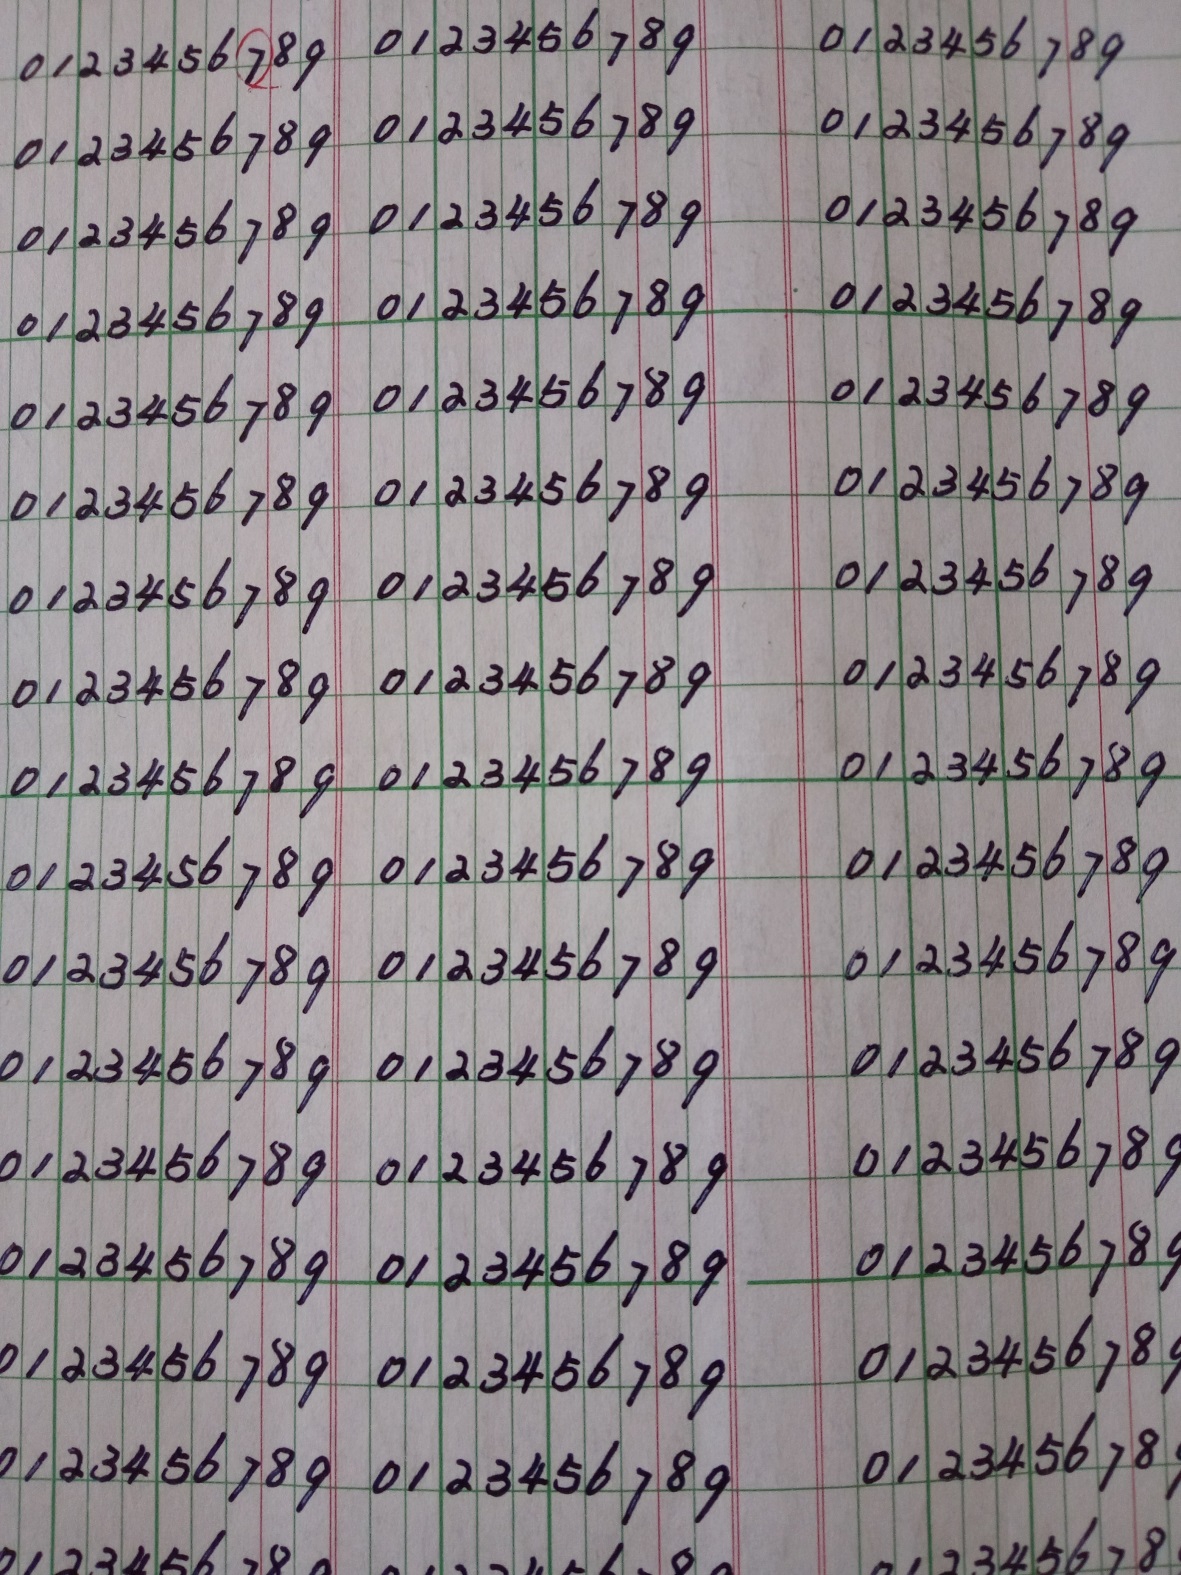 0123456789 0123456789 0123456789
0123456789 0123456789 0123456789
0123456789 0123456789 0123456789
0123456789 0123456789 0123456789
0123456789 0123456789 0123456789
0123456789 0123456789 0123456789
0123456789 0123456789 0123456789
0123456789 0123456789 0123456789
0123456789 0123456789 0123456789
0123456789 0123456789 0123456789
0123456789 0123456789 0123456789
0123456789 0123456789 0123456789
0123456789 0123456789 0123456789
0123456789 0123456789 0123456789
0123456789 0123456789 0123456789
0123456789 0123456789 012345678